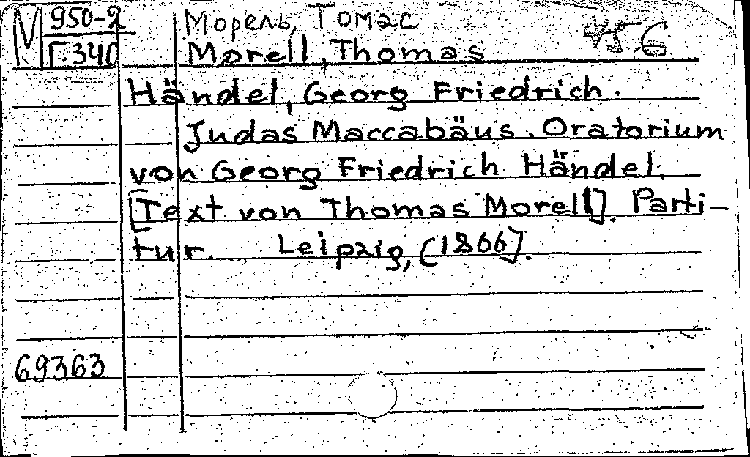 М 950-2
Г.340
Морель, Томас
Morell, Thomas
Händel, Georg Friedrich.
Judas Maccabäus. Oratorium
von Georg Friedrich Händel.
[Text von Thomas Morell]. Parti-
tur. Leipzig, [1866].
69363